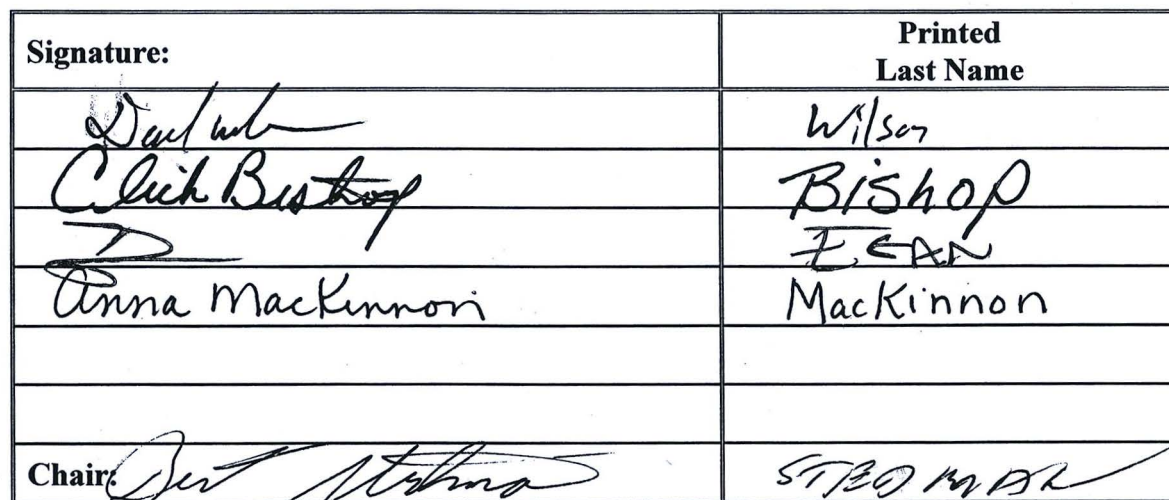 Signature: Printed
Last Name
Wilson
Click Bishop Bishop
Anna MacKinnon MacKinnon
Chair: Bert Stedman STEDMAN